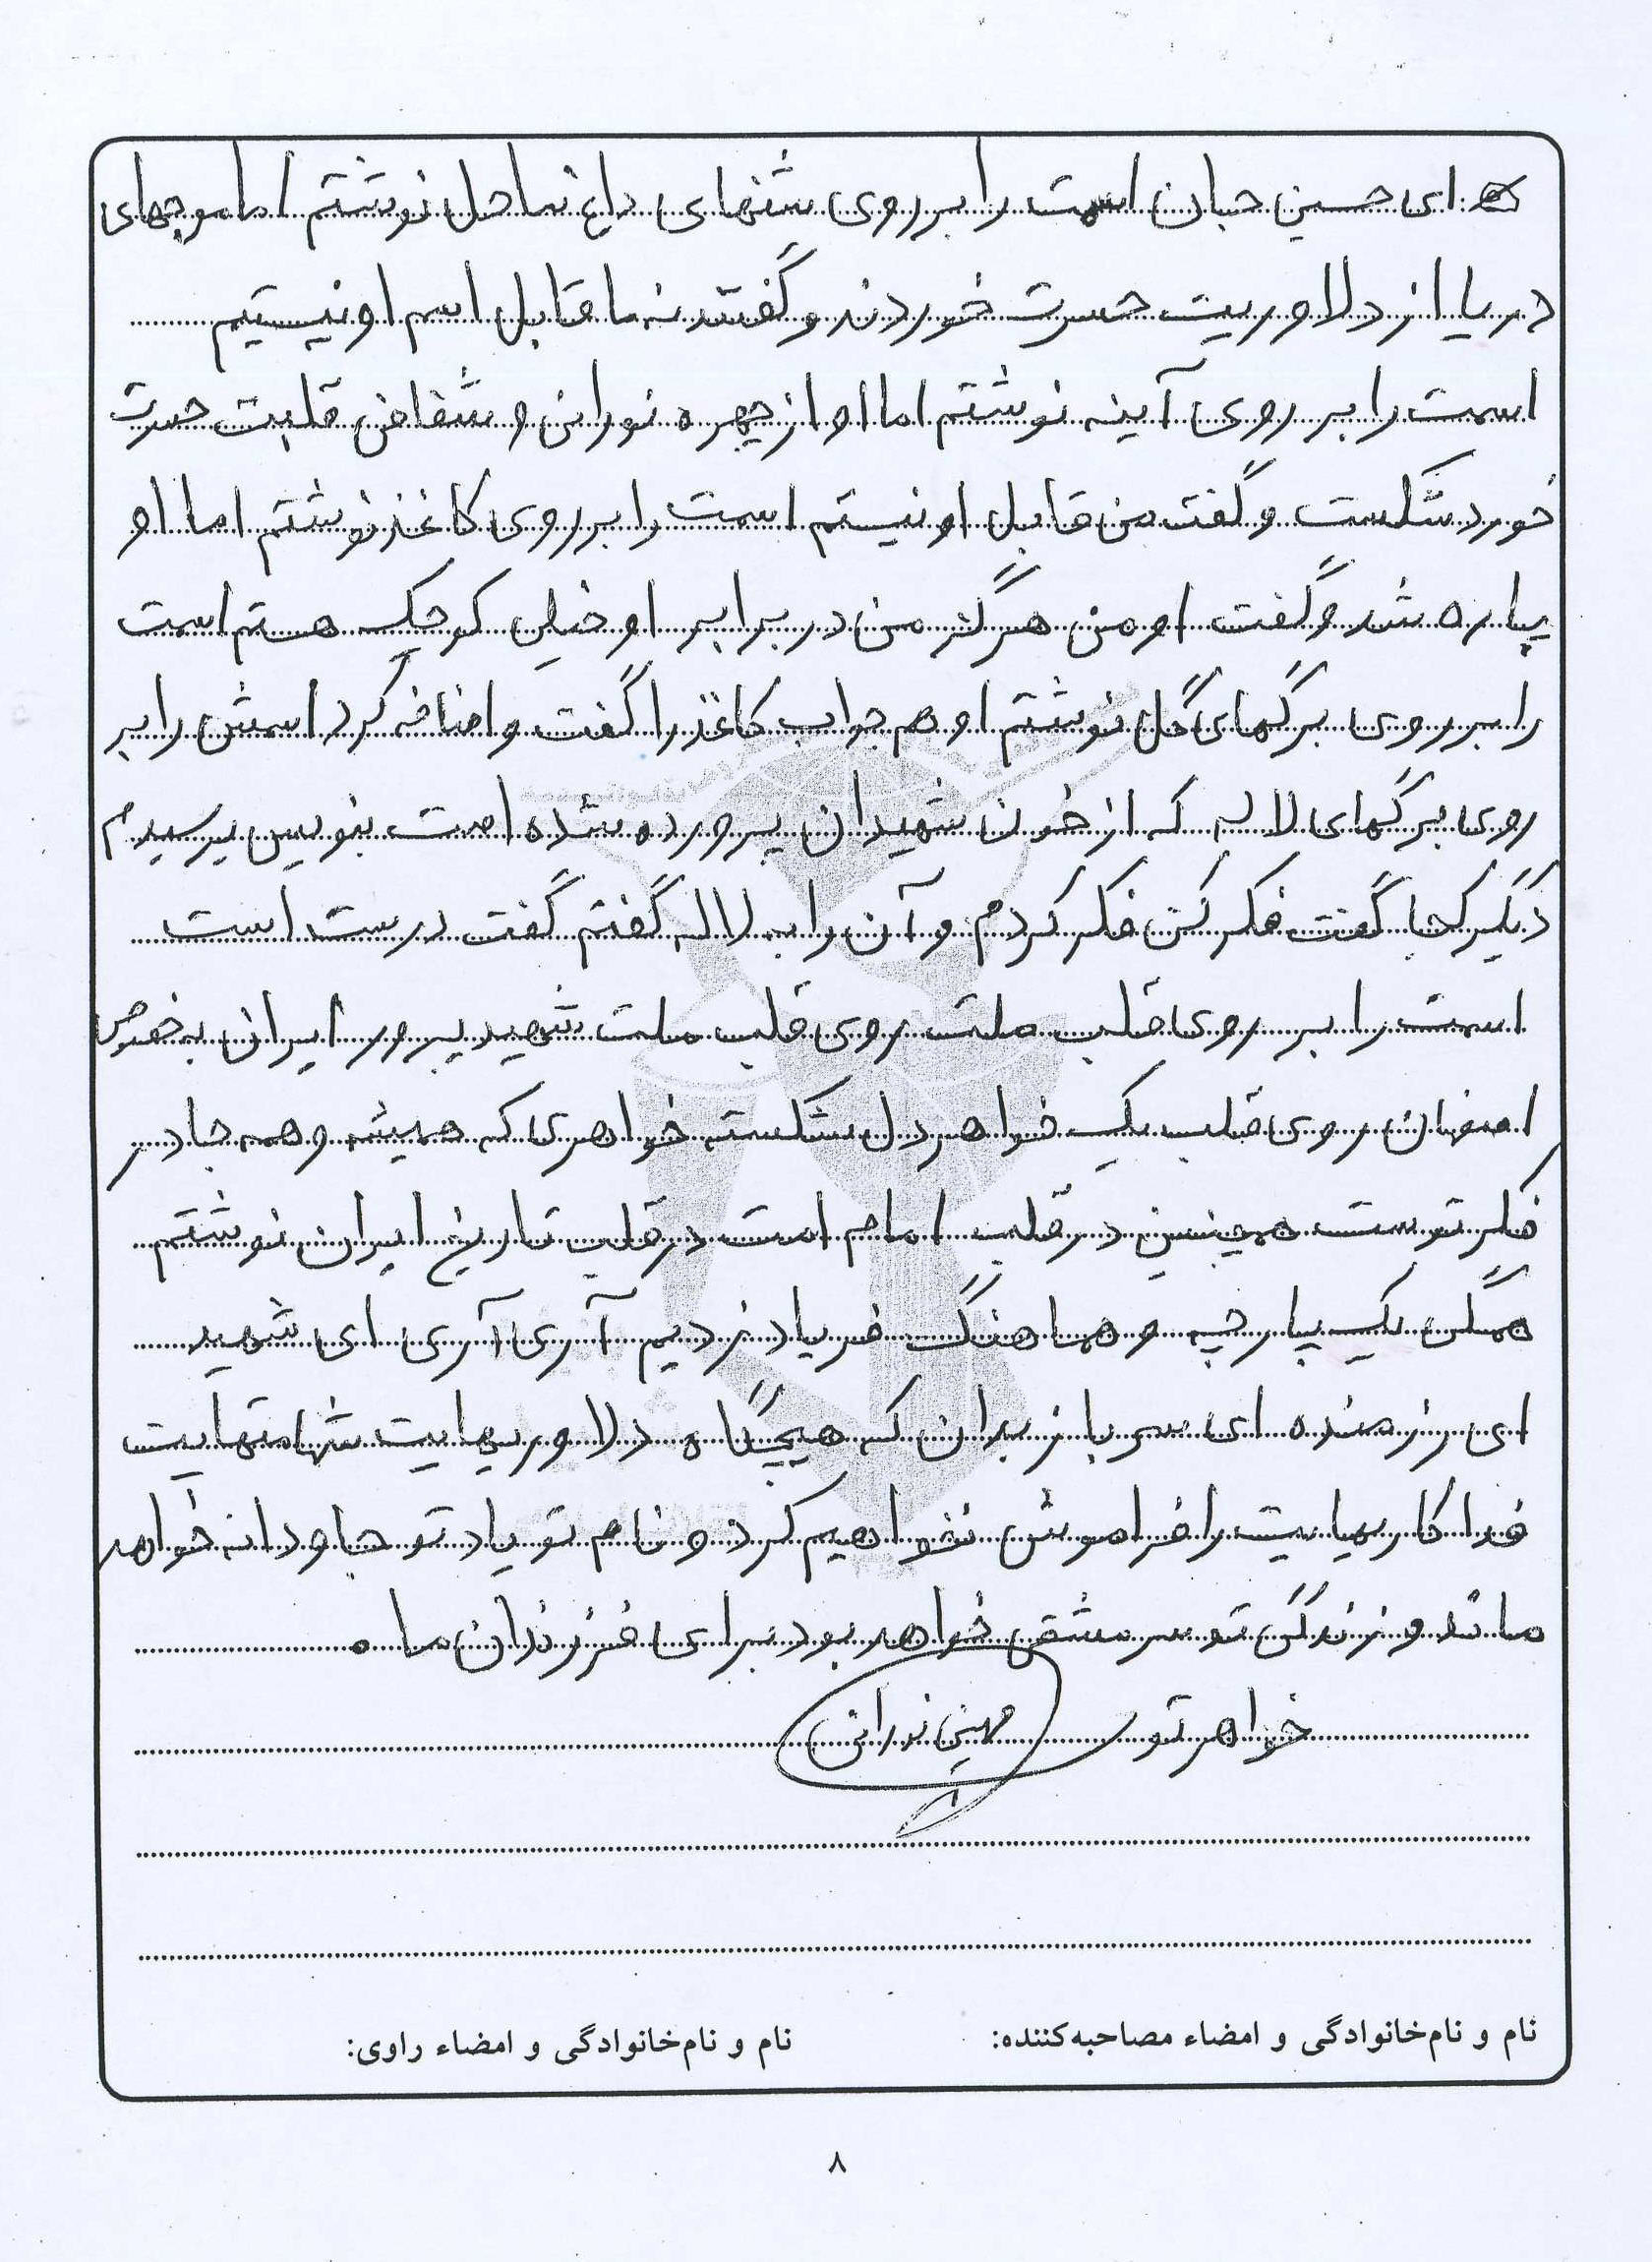 ای حسین جان اسمت را بر روی شنهای داغ ساحل نوشتم اما موجهای
دریا از دلاوریت حسرت خوردند و گفتند نه ما قابل اسم او نیستیم
اسمت را بر روی آینه نوشتم اما او از چهره نورانی و شفافی قلبت حسرت
خورد شکست و گفت من قابل او نیستم اسمت را بر روی کاغذ نوشتم اما او
پاره شد و گفت او من هرگز من در برابر او خیلی کوچک هستم اسمت
را بر روی برگهای گل نوشتم او هم جواب کاغذ را گفت و اضافه کرد اسمش را بر
روی برگهای لاله که از خون شهیدان پرورده شده است بنویس پرسیدم
دیگر کجا گفت فکر کن فکر کردم و آن را به لاله گفتم گفت درست است
اسمت را بر روی قلب ملت روی قلب ملت شهید پرور ایران به خصوص
اصفهان روی قلب یک خواهر دل شکسته خواهری که همیشه و همه جا در
فکر توست همچنین در قلب امام امت در قلب تاریخ ایران نوشتم
همگی یک پارچه و هماهنگ فریاد زدیم آری آری ای شهید
ای رزمنده ای سرباز بدان که هیچگاه دلاوریهایت شهامتهایت
فداکاریهایت را فراموش نخواهیم کرد و نام تو یاد تو جاودانه خواهد
ماند و زندگی تو سرمشقی خواهد بود برای فرزندان ما .
خواهر تو مهین نورانی
نام و نام‌خانوادگی و امضاء مصاحبه‌کننده: نام و نام‌خانوادگی و امضاء راوی:
۸